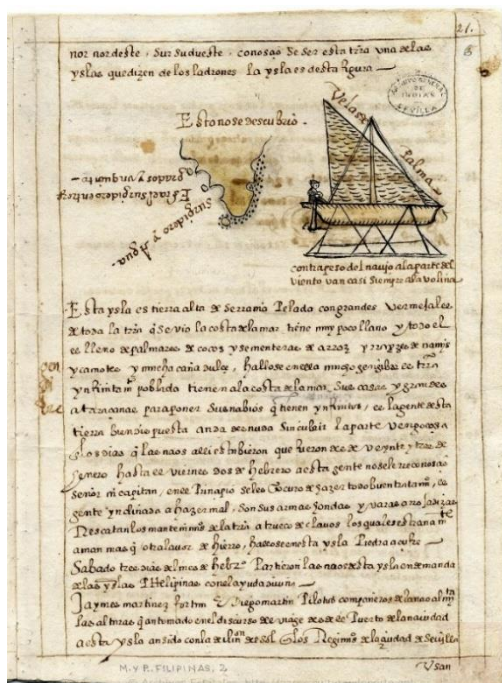 21.
nor nordeste . sur sudueste . conosçio se ser esta trra una de las
yslas que dizen de los ladrones la ysla es desta figura
Esto no se descubrio .
Velas
Palma
ARCHIVO GENERAL DE INDIAS SEVILLA
Surgidero y Agua.
contrapeso del navjo a la parte del
viento van casi siempre a la volina
Esta ysla es tierra alta de serrania Pelado con grandes vermejales
de toda la trra q se vio la costa de la mar tiene muy poco llano y todo el
es lleno de palmares de cocos y sementeras de arroz y rrayzes de namjs
y camotes y mucha caña dulce, hallose en ella mucho gengibre es trra
ynfinitamte poblada tienen a la costa de la mar sus casas y grandes
ataraçanas para poner sus nabios q tienen ynfinitos, es la gente desta
tierra bien dispuesta anda desnuda sin cubrir la parte vergonçosa
los dias q las naos alli estubieron que fueron desde veynte y tres de
henero hasta el viernes dos de hebrero a esta gente no se le reconosçio
señor ni capitan,
gente ynclinada a hazer mal, son sus armas hondas y varas arrojadizas
Rescatan los mantenimos de la trra a trueco de clavos los quales estrañamte
aman mas q otra lavor de hierro, hallose en esta ysla Piedra açufre
Sabado tres dias del mes de hebro Partieron las naos desta ysla en demanda
de las yslas Philipinas con el ayuda de dios
Jaymes martinez fortun E Diego martin Pilotos compañeros
las alturas q an tomado en el discurso del viage desde el Puerto de la navidad
a esta ysla an sido con la declinon del sol los Regimos de la çiudad de Sevilla
Usan
M. Y P. FILIPINAS, 2